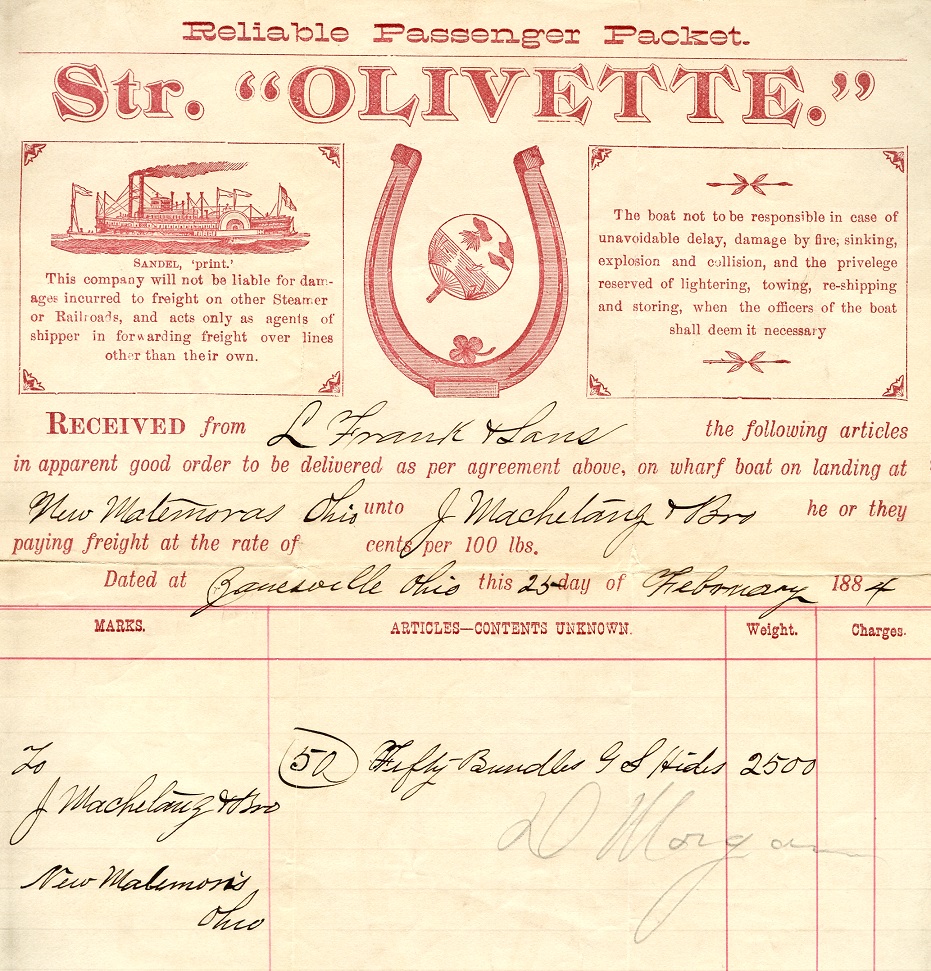 Reliable Passenger Packet.
Str. “OLIVETTE.”
SANDEL, 'print.'
This company will not be liable for dam-
ages incurred to freight on other Steamer
or Railroads, and acts only as agents of
shipper in forwarding freight over lines
other than their own.
The boat not to be responsible in case of
unavoidable delay, damage by fire, sinking,
explosion and collision, and the privelege
reserved of lightering, towing, re-shipping
and storing, when the officers of the boat
shall deem it necessary
RECEIVED from L Frank & Sons the following articles
in apparent good order to be delivered as per agreement above, on wharf boat on landing at
New Matemoras Ohio unto J Machetanz & Bro he or they
paying freight at the rate of cents per 100 lbs.
Dated at Zanesville Ohio this 25 day of February 1884
MARKS. ARTICLES—CONTENTS UNKNOWN. Weight. Charges.
To 50 Fifty Bundles G S Hides 2500
J Machetanz & Bro
D Morgan
New Matemoras
Ohio